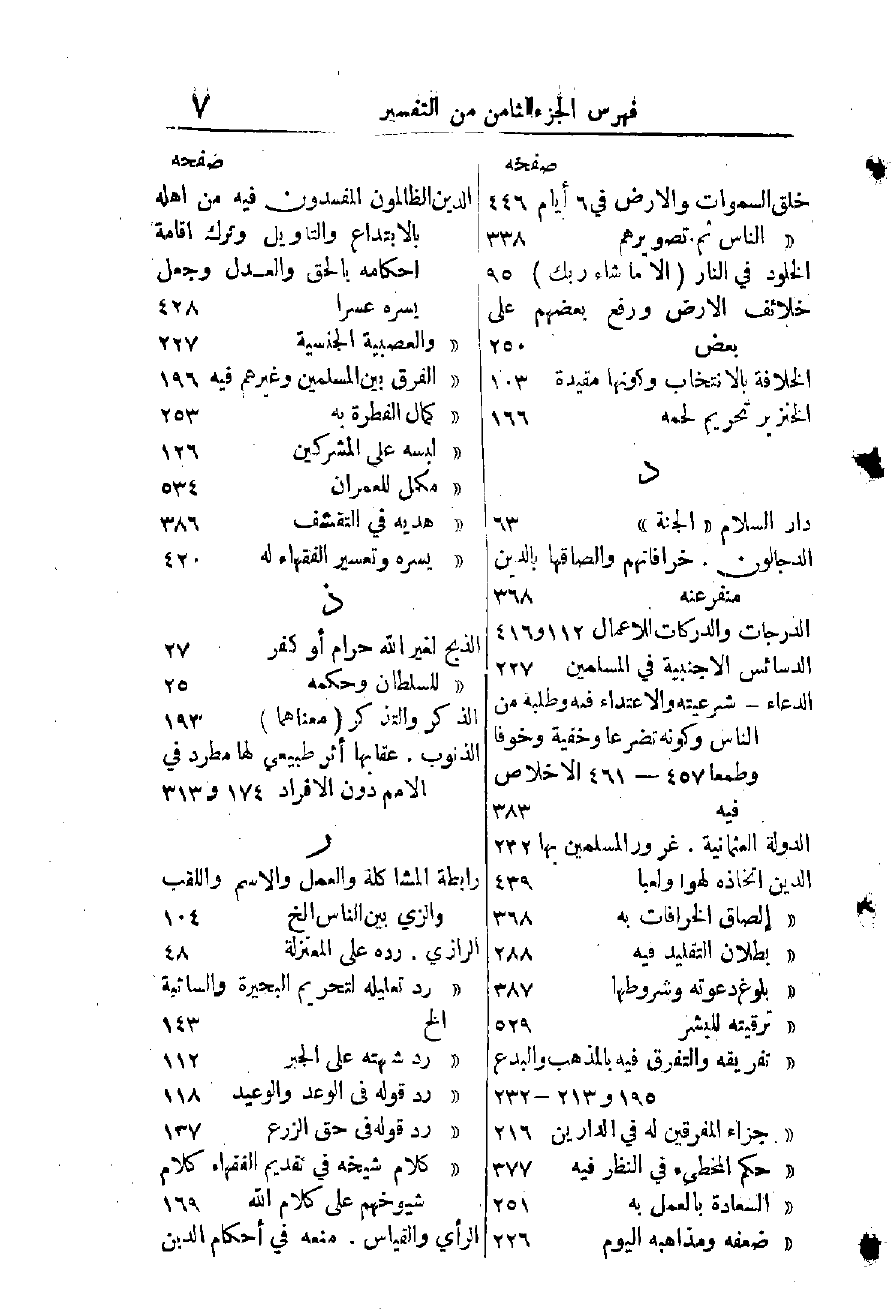 فهرس الجزء الثامن من التفسير ٧
صفحه
خلق السموات والارض في ٦ أيام ٤٤٦
« الناس ثم تصويرهم ٣٣٨
الخلود في النار ( الا ما شاء ربك ) ٩٥
خلائف الارض ورفع بعضهم على
بعض ٢٥٠
الخلافة بالانتخاب وكونها مقيدة ١٠٣
الخنزير تحريم لحمه ١٦٦
د
دار السلام « الجنة » ٦٣
الدجالون . خرافاتهم والصاقها بالدين
متفرعنه ٣٦٨
الدرجات والدركات للاعمال ١١٢ و ٤١٦
الدسائس الاجنبية في المسلمين ٢٢٧
الدعاء – شرعيته والاعتداء فيه وطلبه من
الناس وكونه تضرعا وخفية وخوفا
وطمعا ٤٥٧ – ٤٦١ الاخلاص
فيه ٣٨٣
الدولة العثمانية . غرور المسلمين بها ٢٣٢
الدين اتخاذه لهوا ولعبا ٤٣٩
« إلصاق الخرافات به ٣٦٨
« بطلان التقليد فيه ٢٨٨
« بلوغ دعوته وشروطها ٣٨٧
« ترقيته للبشر ٥٢٩
« تفريقه والتفرق فيه بالمذهب والبدع
١٩٥ و ٢١٣ – ٢٣٢
« جزاء المفرقين له في الدارين ٢١٦
« حكم المخطيء في النظر فيه ٣٧٧
« السعادة بالعمل به ٢٥١
« ضعفه ومذاهبه اليوم ٢٢٦
صفحه
الدين الظالمون المفسدون فيه من اهله
بالابتداع والتاويل وترك اقامة
احكامه بالحق والعدل وجعل
يسره عسرا ٤٢٨
« والعصبية الجنسية ٢٢٧
« الفرق بين المسلمين وغيرهم فيه ١٩٦
« كمال الفطرة به ٢٥٣
« لبسه على المشركين ١٢٦
« مكمل للعمران ٥٣٤
« هديه في التقشف ٣٨٦
« يسره وتعسير الفقهاء له ٤٢٠
ذ
الذبح لغير الله حرام أو كفر ٢٧
« للسلطان وحكمه ٢٥
الذكر والتذكر ( معناهما ) ١٩٣
الذنوب . عقابها أثر طبيعي لها مطرد في
الامم دون الافراد ١٧٤ و ٣١٣
ر
رابطة المشاكلة والعمل والاسم واللقب
والزي بين الناس الخ ١٠٤
الرازي . رده على المعتزلة ٤٨
« رد تعليله لتحريم البحيرة والسائبة
الخ ١٤٣
« رد شبهته على الجبر ١١٢
« رد قوله فى الوعد والوعيد ١١٨
« رد قوله فى حق الزرع ١٣٧
« كلام شيخه في تقديم الفقهاء كلام
شيوخهم على كلام الله ١٦٩
الرأي والقياس . منعه في أحكام الدين